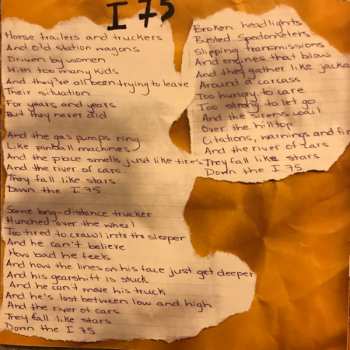 I 75
Horse trailers and truckers
And old station wagons
Driven by women
With too many kids
And they've all been trying to leave
Their situation
For years and years
But they never did
And the gas pumps ring
Like pinball machines
And the place smells just like tires
And the river of cars
They fall like stars
Down the I 75
Some long-distance trucker
Hunched over the wheel
Too tired to crawl into the sleeper
And he can't believe
How bad he feels
And how the lines on his face just get deeper
And his gearshift is stuck
And he can't move his truck
And he's lost between low and high
And the river of cars
They fall like stars
Down the I 75
Broken headlights
Busted Speedometers
Slipping transmissions
And engines that blow
And they gather like jackals
Around a carcass
Too hungry to care
Too strong to let go
And the sirens wail
Over the hilltop
Citations, warnings and fines
And the river of cars
They fall like stars
Down the I 75